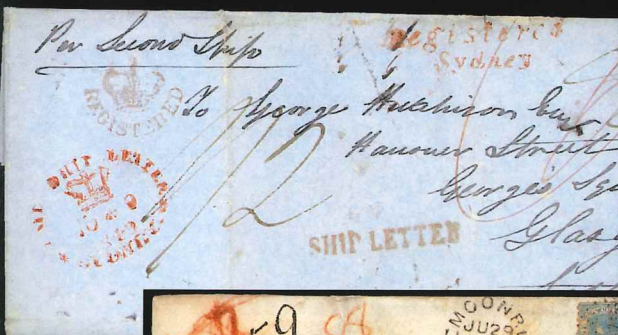 Per Second Ship
Registered
Sydney
REGISTERED
To George Hutchison Esqr
Hanover Street
George's Sq
Glasg
SHIP LETTER
SYDNEY
1/2
SHIP LETTER
9
JU 29